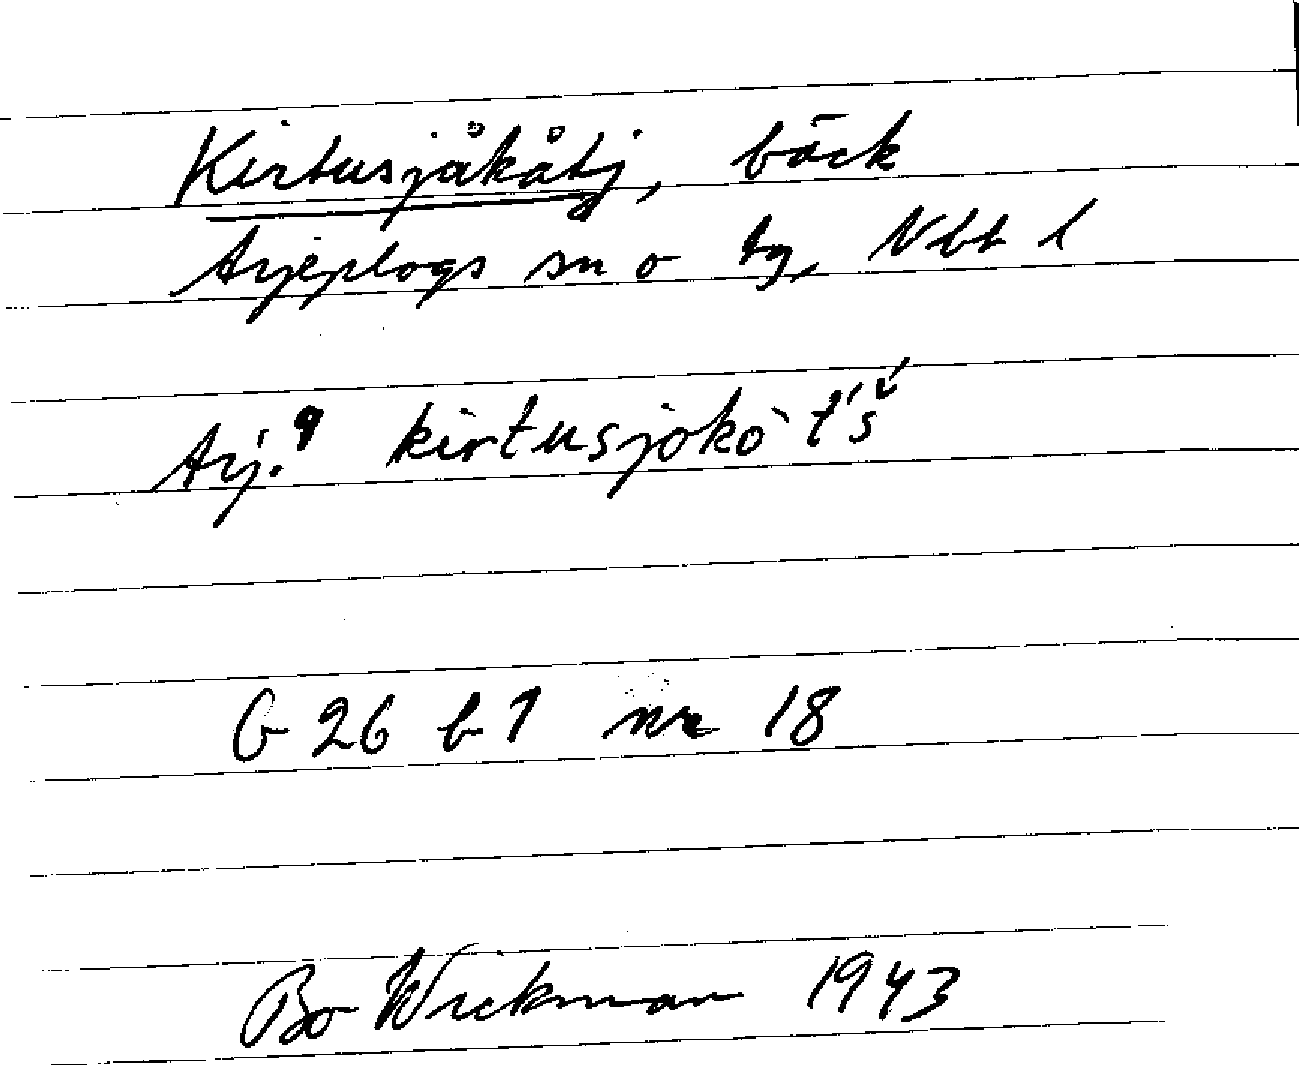 Kirtusjåkåtj, bäck
Arjeplogs sn o tg, Nbt l
Arj.9 kirtusjokò t́š́
G 26 b 1 nr 18
Bo Wickman 1943